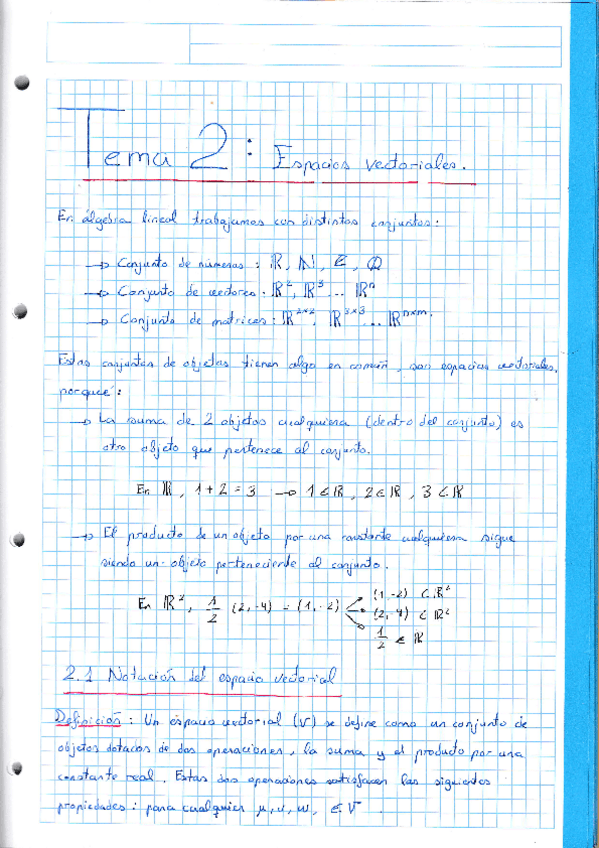 Tema 2: Espacios vectoriales.
En álgebra lineal trabajamos con distintos conjuntos:
→ Conjunto de números: ℝ, ℕ, ℤ, ℚ
→ Conjunto de vectores: ℝ², ℝ³ ... ℝⁿ
→ Conjunto de matrices: ℝ²ˣ², ℝ³ˣ³ ... ℝⁿˣᵐ.
Estos conjuntos de objetos tienen algo en común, son espacios vectoriales,
porque:
→ La suma de 2 objetos cualquiera (dentro del conjunto) es
otro objeto que pertenece al conjunto.
En ℝ, 1+2=3 → 1∈ℝ, 2∈ℝ, 3∈ℝ
→ El producto de un objeto por una constante cualquiera sigue
siendo un objeto perteneciente al conjunto.
En ℝ², 1/2 (2,-4) = (1,-2)
(1,-2) ∈ ℝ²
(2,-4) ∈ ℝ²
1/2 ∈ ℝ
2.1 Notación del espacio vectorial
Definición: Un espacio vectorial (V) se define como un conjunto de
objetos dotados de dos operaciones, la suma y el producto por una
constante real. Estas dos operaciones satisfacen las siguientes
propiedades: para cualquier μ, v, w, ∈ V